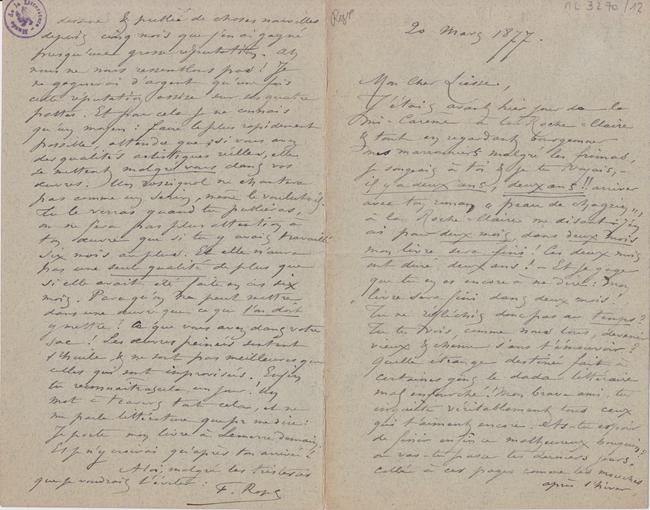 20 Mars 1877.
Mon Cher Liesse,
J'étais avant hier jour de la
Mi-Carême à la Roche-Claire
& tout en regardant bourgeonner
mes marronniers malgré les frimas,
je songeais à toi & je te voyais, -
il y a deux ans, deux ans!! arriver
avec ton roman "peau de chagrin",
à la Roche-Claire me disant: j'en
ai pour deux mois, dans deux mois
mon livre sera fini! Ces deux mois
ont duré deux ans! - Et je gage
que tu en es encore à me dire: mon
livre sera fini dans deux mois!
Tu ne réfléchis donc pas au temps?
Tu te vois, comme nous tous, devenir
vieux & chenu sans t'émouvoir?
Quelle étrange destinée fait à
certaines gens le dada littéraire
mal enfourché! Mon brave ami tu
inquiètes véritablement tous ceux
qui t'aiment encore. As-tu espoir
de finir enfin ce malheureux bouquin?
ou vas-tu passer tes derniers jours,
collé à ces pages comme les mouches
après l'hiver
& publiée de choses nouvelles
depuis cinq mois que j'en ai gagné
presqu'une grosse réputation. Ah
nous ne nous ressemblons pas! Je
ne gagnerai d'argent qu'une fois
cette réputation assise sur ses quatre
pattes. Et pour cela je ne connais
qu'un moyen: faire le plus rapidement
possible, attendu que si vous avez
des qualités artistiques réelles, elles
se mettent malgré vous dans vos
œuvres. Un rossignol ne chantera
pas comme un serin, même le voulut-il.
Tu le verras quand tu publieras,
on ne fera pas plus attention à
ton œuvre que si tu y avais travaillé
six mois au plus. Et elle n'aura
pas une seule qualité de plus que
si elle avait été faite en ces six
mois. Parce qu'on ne peut mettre
dans une œuvre que ce que l'on doit
y mettre! Ce que vous avez dans votre
sac! Les œuvres peinées sentent
l'huile & ne sont pas meilleures que
celles qui sont improvisées. Enfin
tu reconnaîtras cela un jour! Un
mot à travers tout cela, et ne
me parle littérature que pr me dire:
Je porte mon livre à Lemerre demain,
Et je n'y croirai qu'après ton arrivée!
A toi, malgré les tristesses
que je voudrais t'éviter:
F. Rops